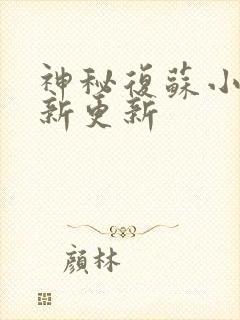 神秘復蘇小
新更新
顏林